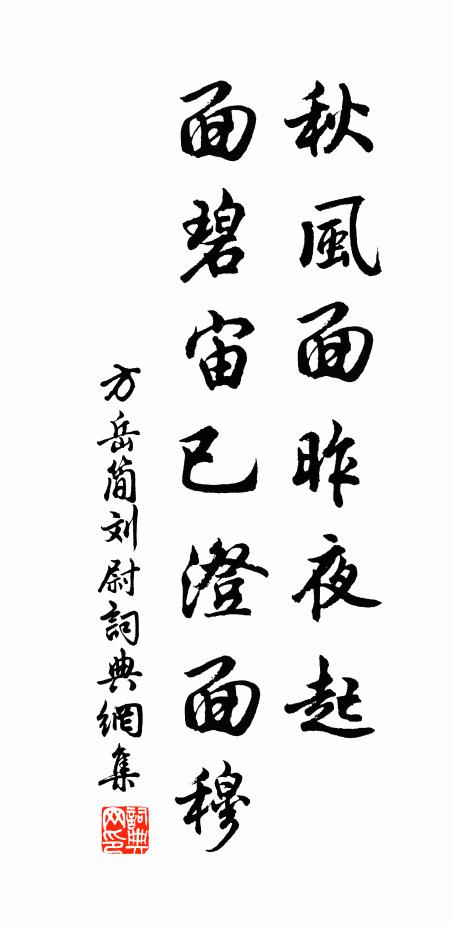 秋風面昨夜起
面碧宙已澄面穆
方岳簡刘尉詞典網集
詞典网印